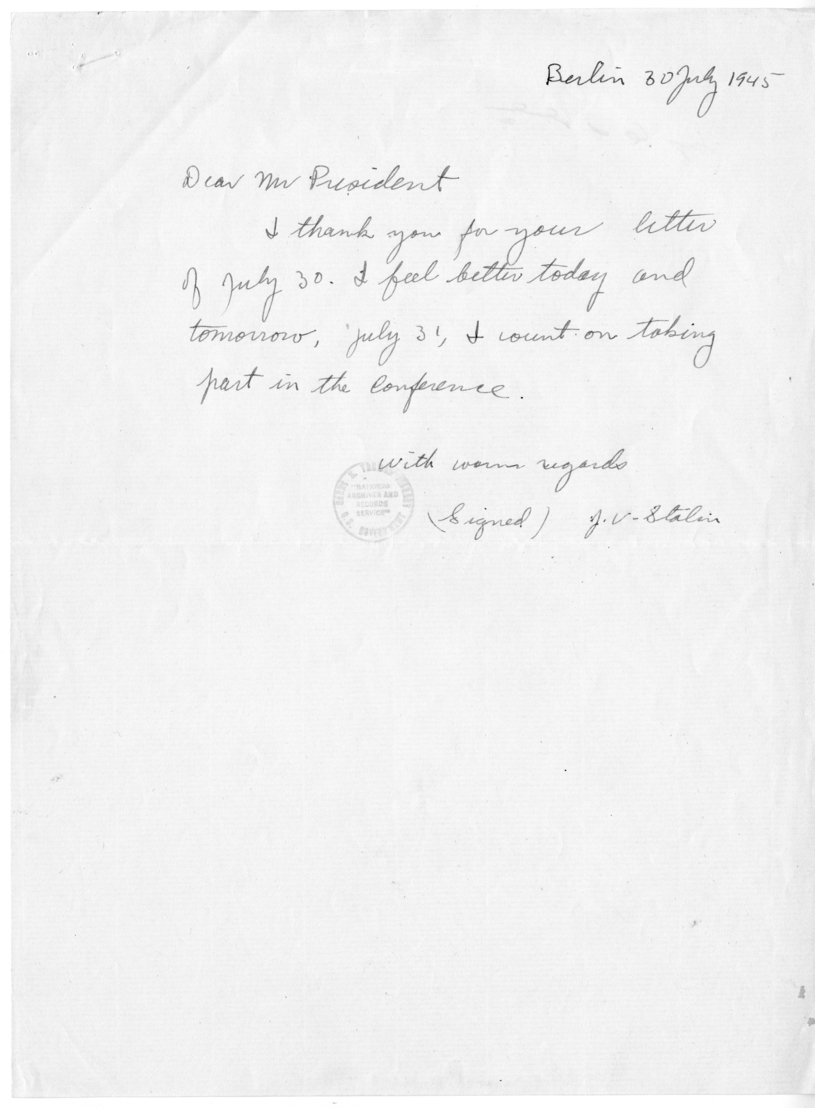 Berlin 30 July 1945
Dear Mr President
I thank you for your letter
of July 30. I feel better today and
tomorrow, July 31, I count on taking
part in the Conference.
with warm regards
(Signed) J.V-Stalin
HARRY S. TRUMAN LIBRARY
NATIONAL
ARCHIVES AND
RECORDS
SERVICE
U.S. GOVERNMENT